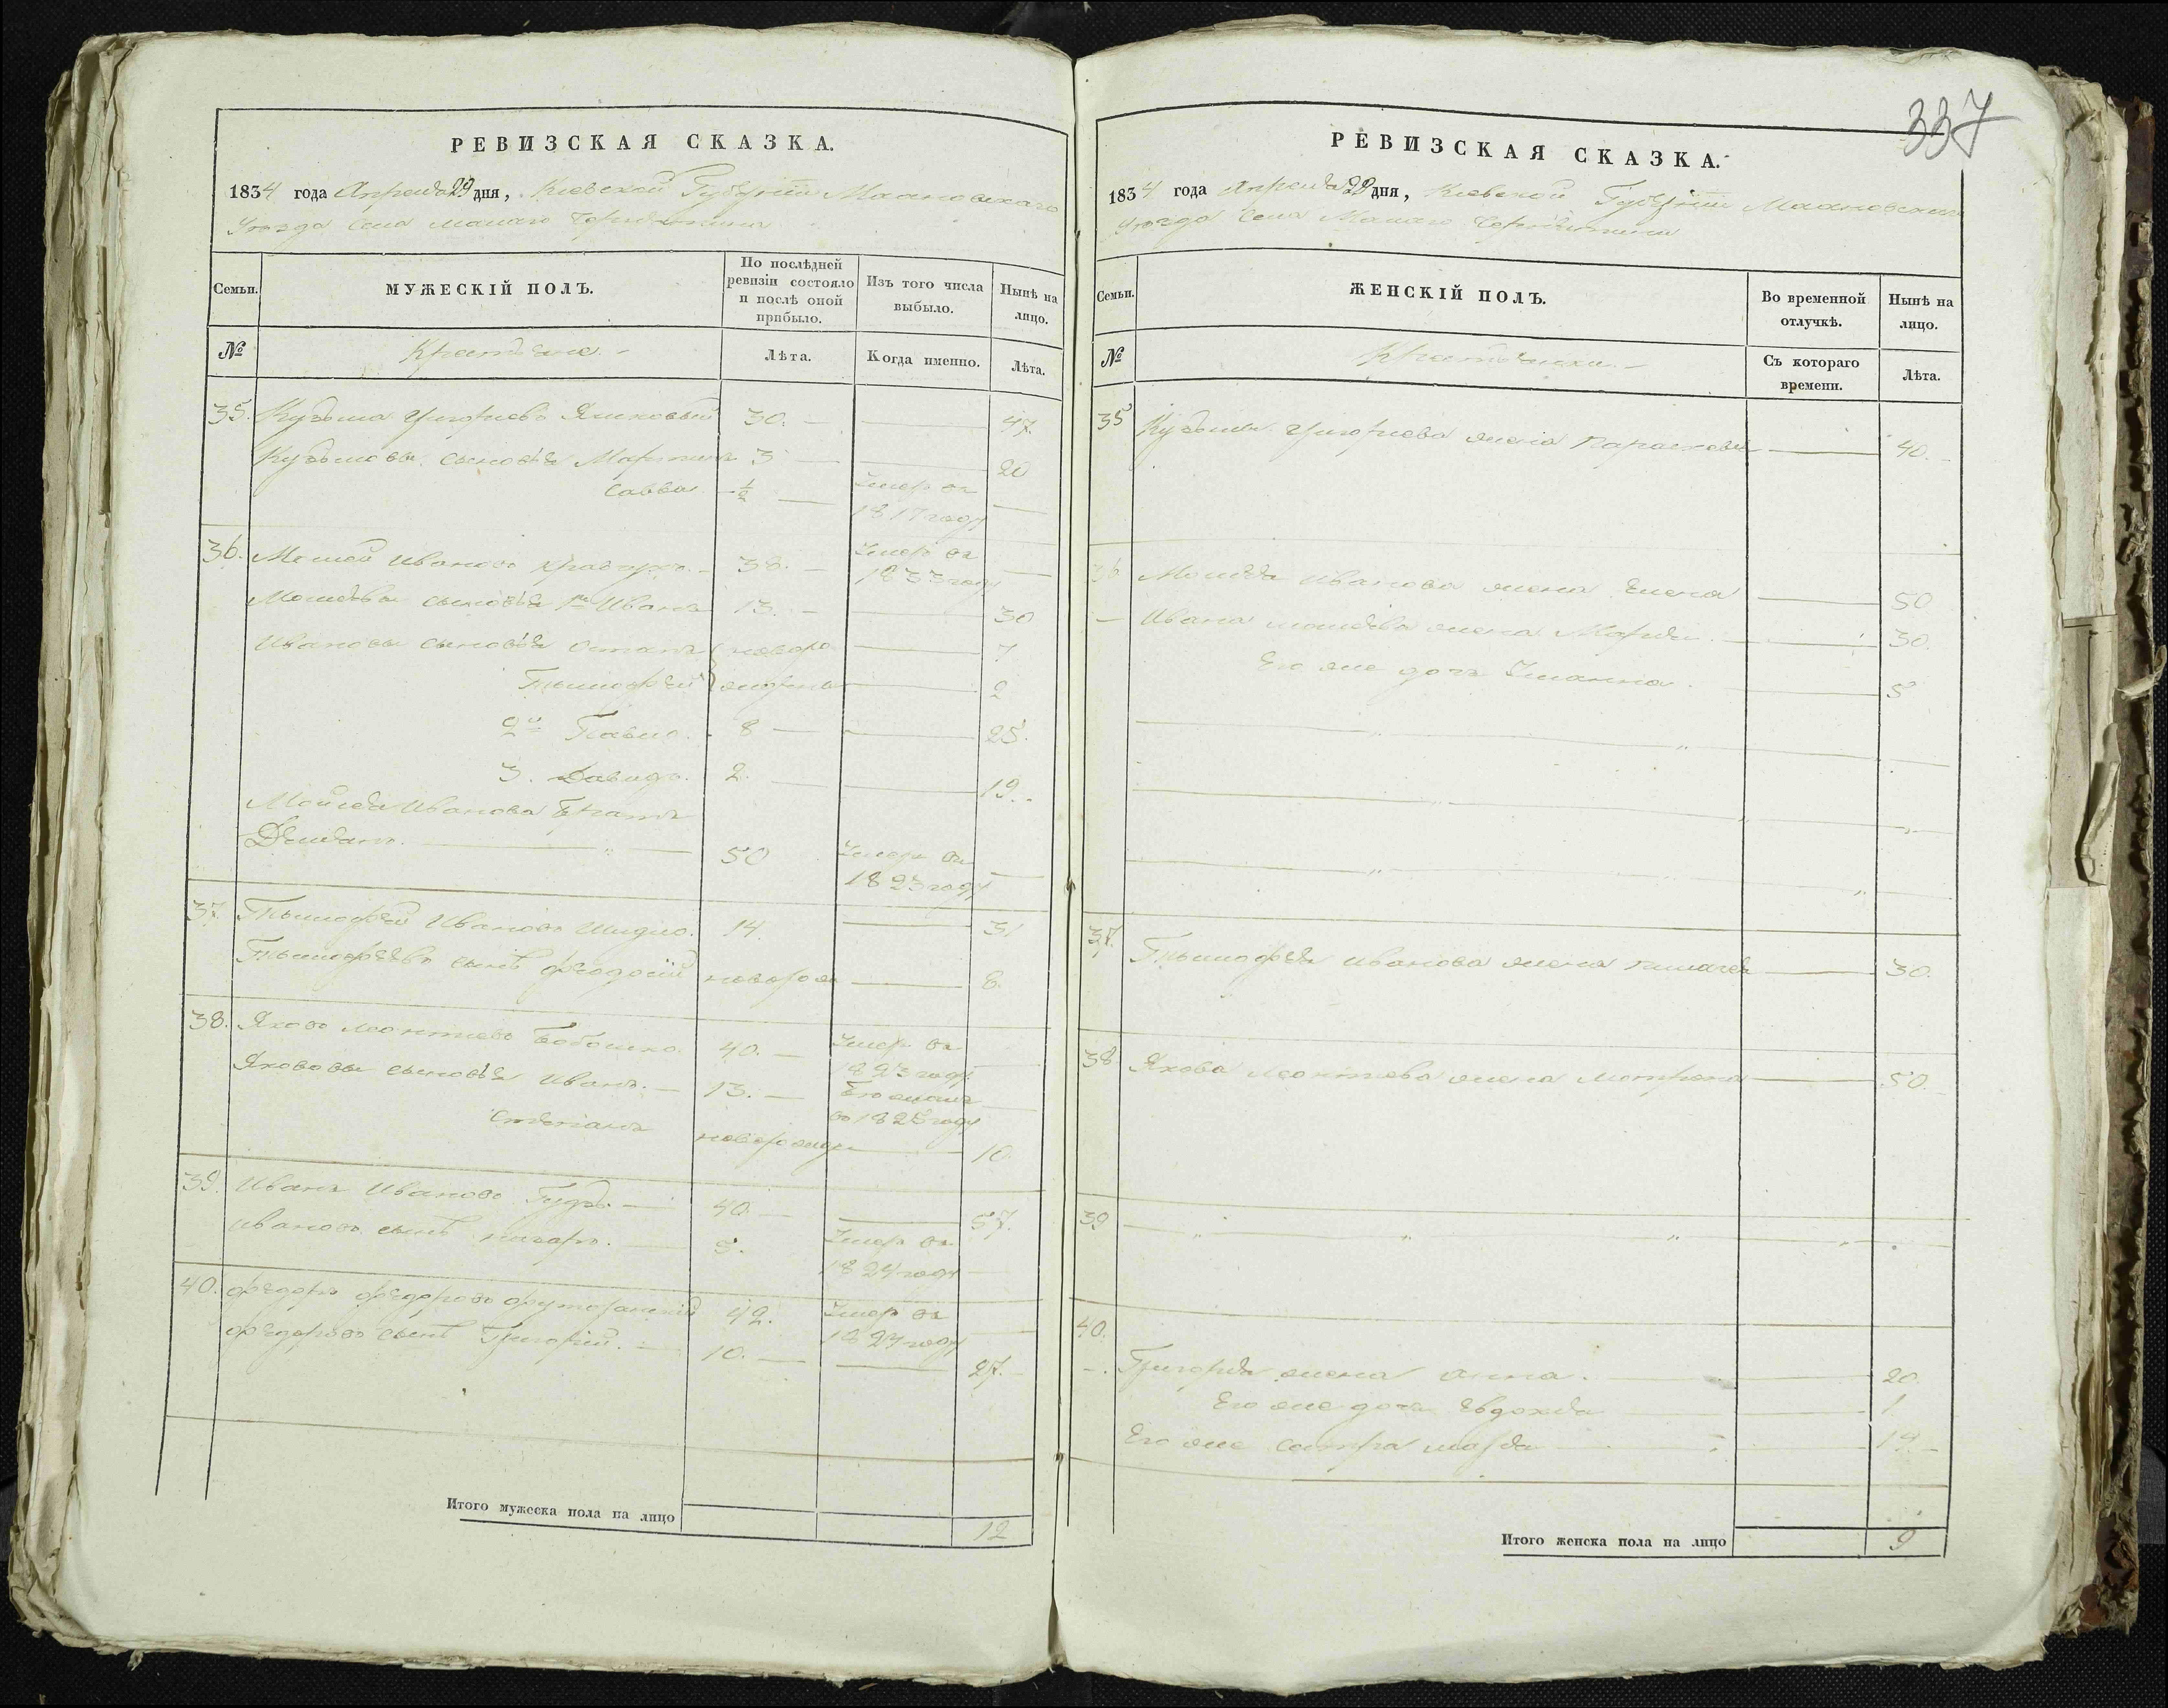 337
РЕВИЗСКАЯ СКАЗКА.
1834 года Апреля 29 дня, Киевской Губернии
Уезда Села Малаго
Семьи.
МУЖЕСКІЙ ПОЛЪ.
По послѣдней ревизіи состояло и послѣ оной прибыло.
Изъ того числа выбыло.
Нынѣ на лицо.
№
Крестьяне.
Лѣта.
Когда именно.
Лѣта.
35. Кузьма Григорьевъ 30. 47.
Кузьмовы сыновья 3 20
Савва ½ Умеръ въ
1817 году
36. Мойсей Ивановъ 38. Умеръ въ
1833 году
Мойсеевы сыновья 1й Иванъ 13. 30
Ивановы сыновья Остапъ новоро 7
Тымофей жденные 2
2й Павло. 8 25.
3. Давидъ. 2. 19.
Мойсея Иванова братъ
Демьянъ. 50 Умеръ въ
1823 году
37. Тымофей Ивановъ Шидло. 14. 31
Тымофеевъ сынъ Феодосій новорож 8.
38. Яковъ Леонтиевъ 40. Умеръ въ
1823 году
Яковovы сыновья Иванъ. 13.
въ 1828 году
Степанъ новорожден 10.
39. Иванъ Ивановъ 40. 57.
Ивановъ сынъ Назаръ. 5. Умеръ въ
1824 году
40. Федоръ Федоровъ 42. Умеръ въ
1824 году
Федоровъ сынъ Григорій. 10. 27.
Итого мужеска пола на лицо 12
РЕВИЗСКАЯ СКАЗКА.
1834 года Апреля 29 дня, Киевской Губернии
Уезда Села Малаго
Семьи.
ЖЕНСКІЙ ПОЛЪ.
Во временной отлучкѣ.
Нынѣ на лицо.
№
Крестьянки
Съ котораго времени.
Лѣта.
35 Кузьмы Григорьева жена Парасковья 40.
36 Мойсея Иванова жена Елена 50
Ивана Мойсеева жена Марья 30.
Его же дочь Ульянна 5
37. Тымофея Иванова жена 30.
38 Якова Леонтиева жена Мотрона 50.
39
40.
Григорья жена Анна. 20.
Его же дочь Евдокия 1
Его же сестра Марья 19
Итого женска пола на лицо 9